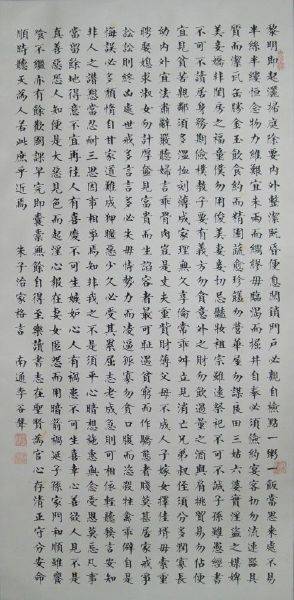 黎明即起灑掃庭除要內外整潔既昏便息關鎖門戶必親自檢點一粥一飯當思來處不易
半絲半縷恒念物力維艱宜未雨而綢繆毋臨渴而掘井自奉必須儉約宴客切勿流連器具
質而潔瓦缶勝金玉飲食約而精園蔬愈珍饈勿營華屋勿謀良田三姑六婆實淫盜之媒婢
美妾嬌非閨房之福童僕勿用俊美妻妾切忌艷妝祖宗雖遠祭祀不可不誠子孫雖愚經書
不可不讀居身務期儉樸教子要有義方勿貪意外之財勿飲過量之酒與肩挑貿易勿佔便
宜見貧苦親鄰須多溫恤刻薄成家理無久享倫常乖舛立見消亡兄弟叔侄須分多潤寡長
幼內外宜法肅辭嚴聽婦言乖骨肉豈是丈夫重貲財薄父母不成人子嫁女擇佳婿毋索重
聘娶媳求淑女勿計厚奩見富貴而生諂容者最可恥遇貧窮而作驕態者賤莫甚居家戒爭
訟訟則終凶處世戒多言言多必失毋恃勢力而凌逼孤寡勿貪口腹而恣殺牲禽乖僻自是
悔誤必多頹惰自甘家道難成狎暱惡少久必受其累屈志老成急則可相依輕聽發言安知
非人之譖愬當忍耐三思因事相爭焉知非我之不是須平心暗想施惠無念受恩莫忘凡事
當留餘地得意不宜再往人有喜慶不可生妒心人有禍患不可生喜幸心善欲人見不是
真善惡恐人知便是大惡見色而起淫心報在妻女匿怨而用暗箭禍延子孫家門和順雖饔
飧不繼亦有餘歡國課早完即囊橐無餘自得至樂讀書志在聖賢為官心存清正守分安命
順時聽天為人若此庶乎近焉 朱子治家格言 南通李谷聲